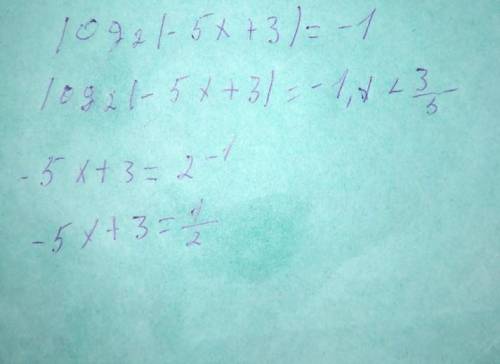 log₂(-5x+3)=-1
log₂(-5x+3)=-1, x<3/5
-5x+3=2⁻¹
-5x+3=1/2